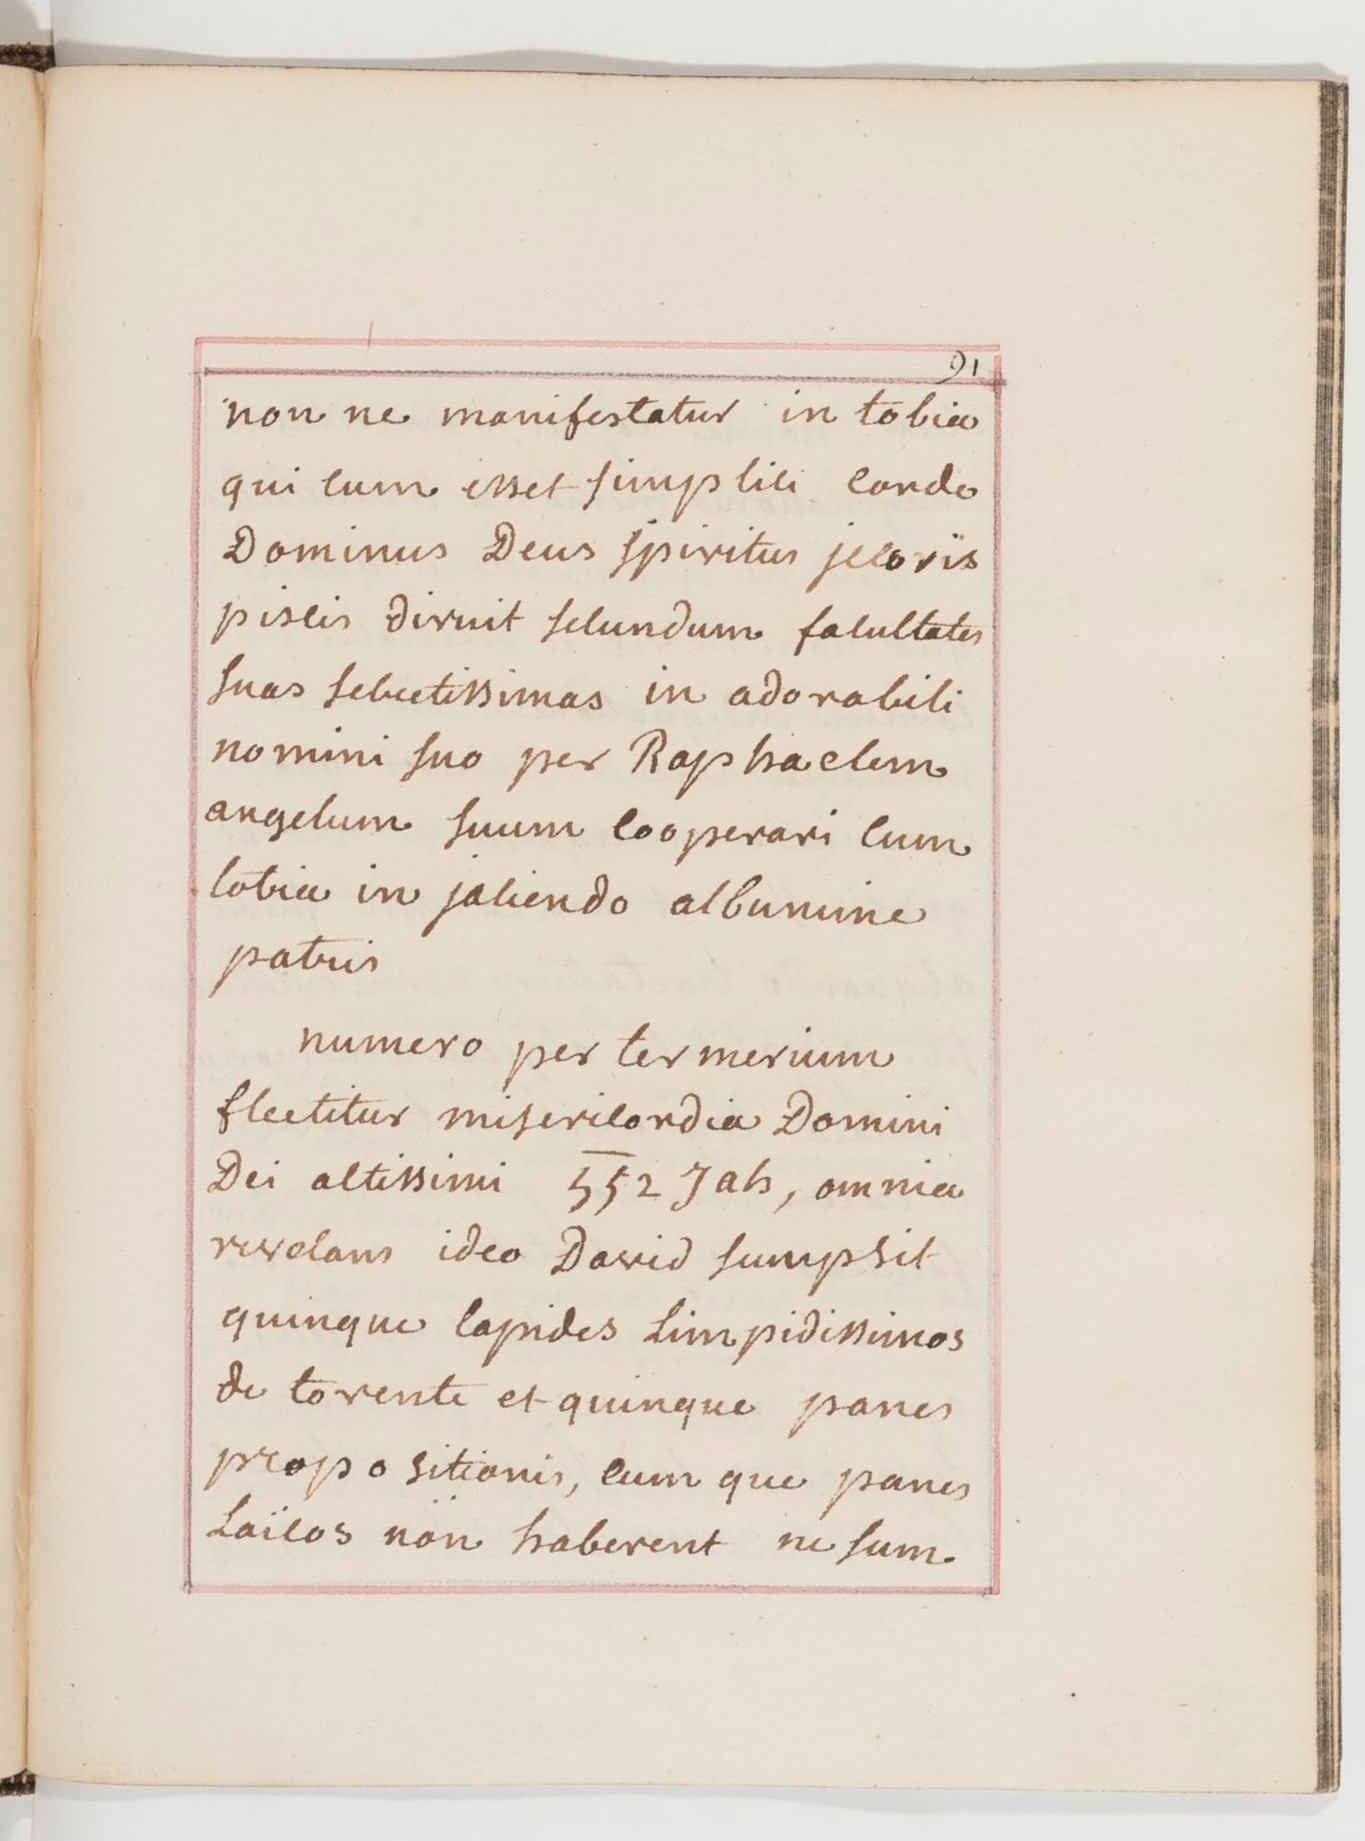 91
non ne manifestatur in tobia
qui cum esset simplici corde
Dominus Deus spiritus jecoris
piscis diruit secundum facultates
suas selectissimas in adorabili
nomini suo per Raphaelem
angelum suum cooperari cum
tobia in jaciendo albumine
patris
numero per ter merium
flectitur misericordia Domini
Dei altissimi 552 Jah, omnia
revelans ideo David sumpsit
quinque lapides limpidissimos
de torente et quinque panes
propositionis, cumque panes
Laicos non haberent ne sum